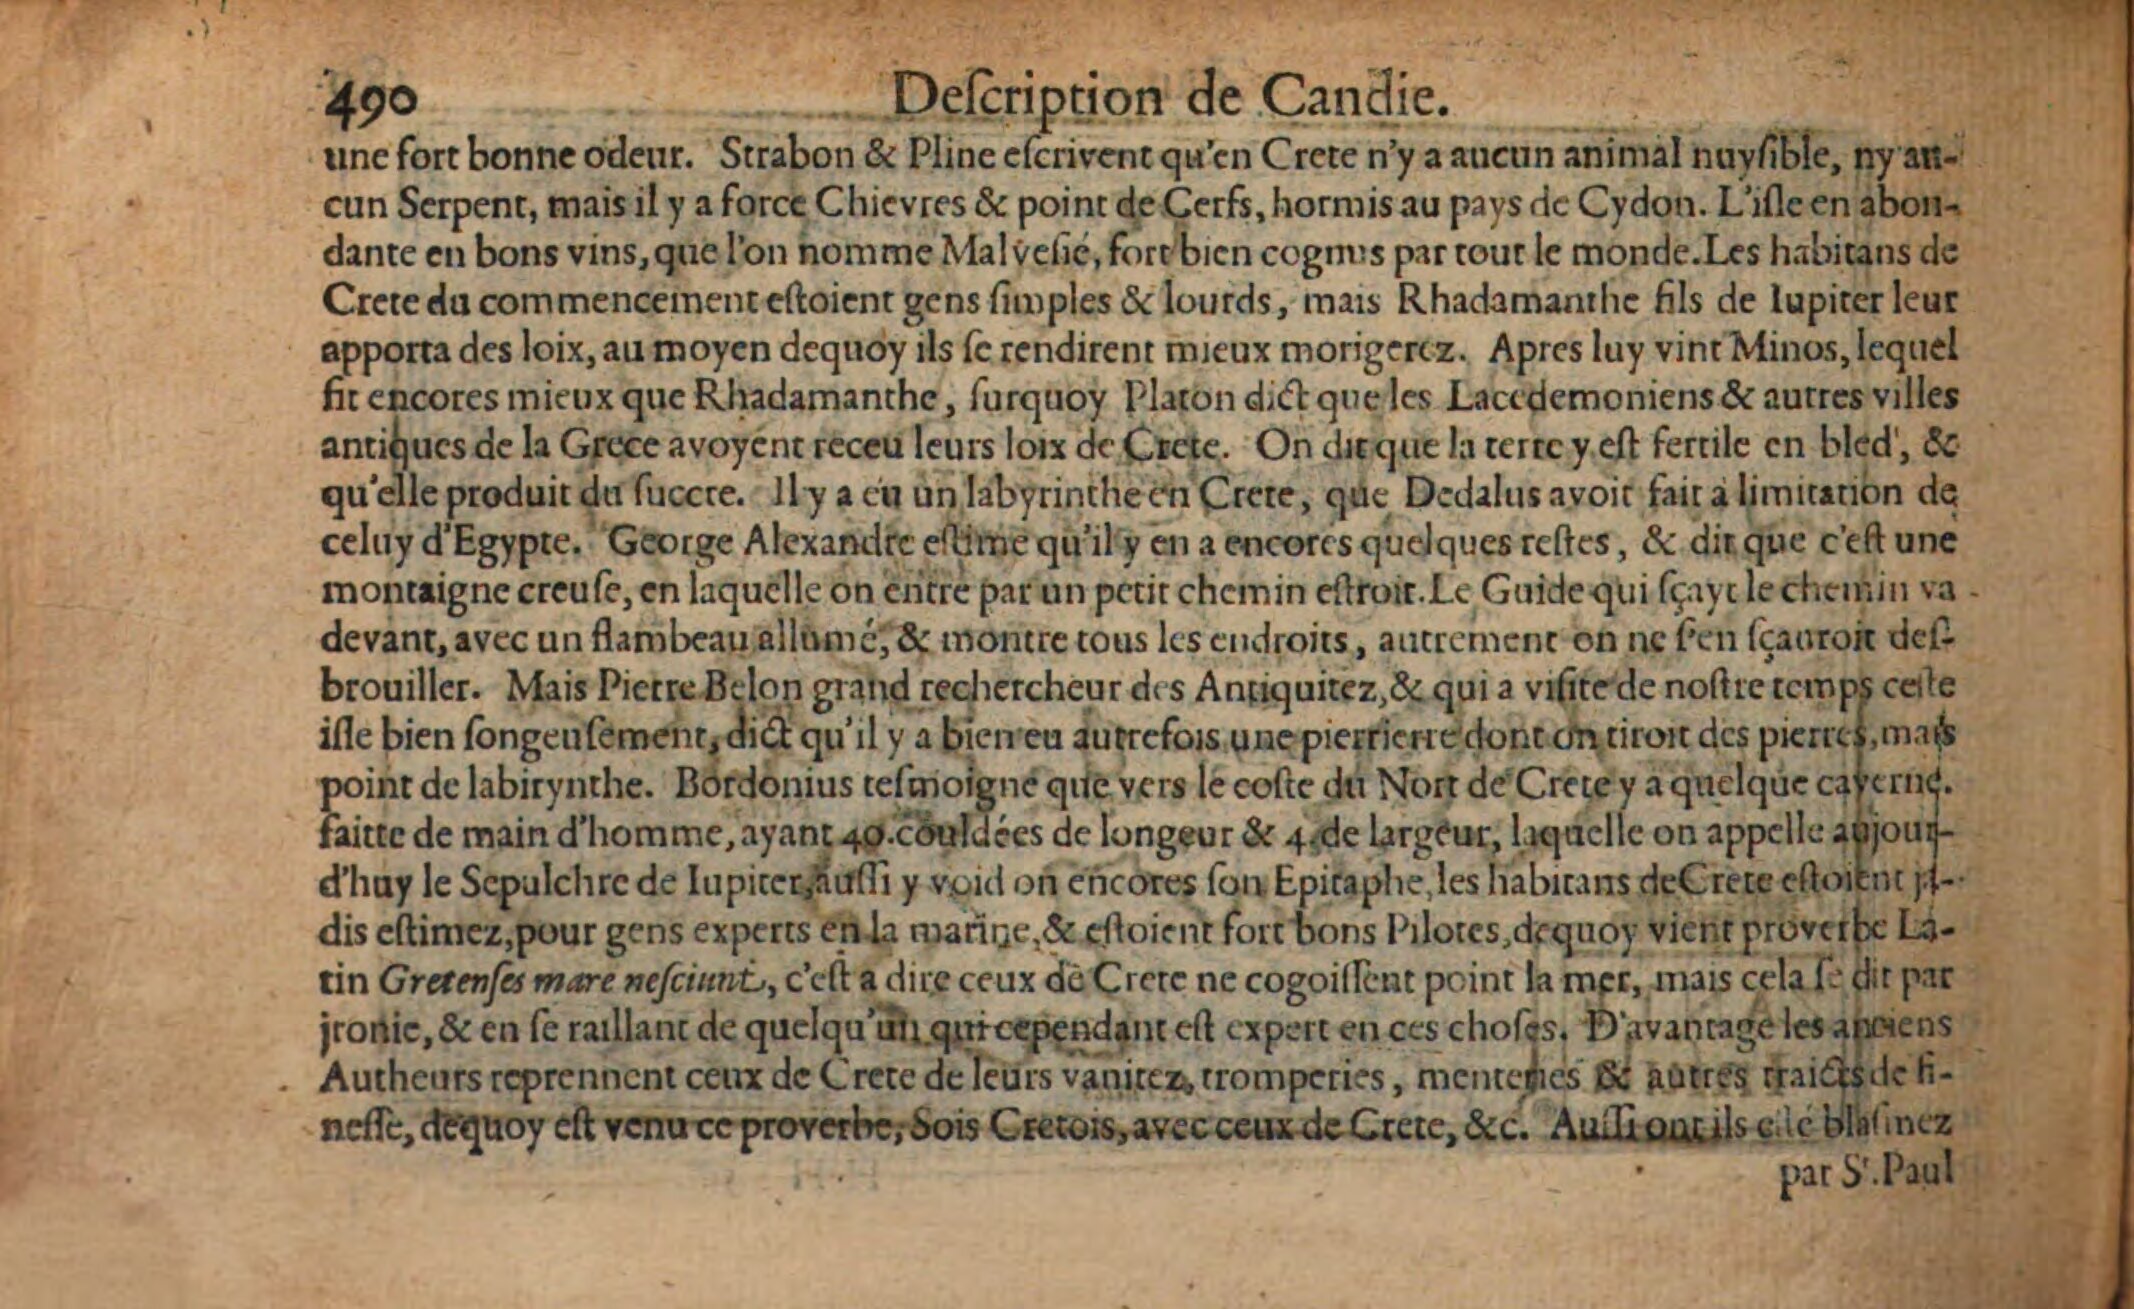 490 Deſcription de Candie.
une fort bonne odeur. Strabon & Pline eſcrivent qu'en Crete n'y a aucun animal nuyſible, ny au-
cun Serpent, mais il y a force Chievres & point de Cerfs, hormis au pays de Cydon. L'iſle en abon-
dante en bons vins, que l'on nomme Malveſié, fort bien cognus par tout le monde. Les habitans de
Crete du commencement eſtoient gens ſimples & lourds, mais Rhadamanthe fils de Iupiter leur
apporta des loix, au moyen dequoy ils ſe rendirent mieux morigerez. Apres luy vint Minos, lequel
fit encores mieux que Rhadamanthe, ſurquoy Platon dict que les Lacedemoniens & autres villes
antiques de la Grece avoyent receu leurs loix de Crete. On dit que la terre y eſt fertile en bled, &
qu'elle produit du ſuccre. Il y a eu un labyrinthe en Crete, que Dedalus avoit fait a limitation de
celuy d'Egypte. George Alexandre eſtime qu'il y en a encores quelques reſtes, & dit que c'eſt une
montaigne creuſe, en laquelle on entre par un petit chemin eſtroit. Le Guide qui ſçayt le chemin va
devant, avec un flambeau allumé, & montre tous les endroits, autrement on ne ſ'en ſçauroit deſ-
brouiller. Mais Pierre Belon grand rechercheur des Antiquitez, & qui a viſité de noſtre temps ceſte
iſle bien ſongeuſement, dict qu'il y a bien eu autrefois une pierrierre dont on tiroit des pierres, mais
point de labirynthe. Bordonius teſmoigne que vers le coſte du Nort de Crete y a quelque caverne.
faitte de main d'homme, ayant 40. couldées de longeur & 4. de largeur, laquelle on appelle aujour-
d'huy le Sepulchre de Iupiter, auſſi y void on encores ſon Epitaphe, les habitans de Crete eſtoient ja-
dis eſtimez, pour gens experts en la marine, & eſtoient fort bons Pilotes, dequoy vient proverbe La-
tin Gretenſes mare neſciunt, c'eſt a dire ceux de Crete ne cogoiſſent point la mer, mais cela ſe dit par
jronie, & en ſe raillant de quelqu'un qui cependant eſt expert en ces choſes. D'avantage les anciens
Autheurs reprennent ceux de Crete de leurs vanitez, tromperies, menteries & autres traicts de fi-
neſſe, dequoy eſt venu ce proverbe, Sois Cretois, avec ceux de Crete, &c. Auſſi ont ils eſté blaſmez
par Sᵗ. Paul